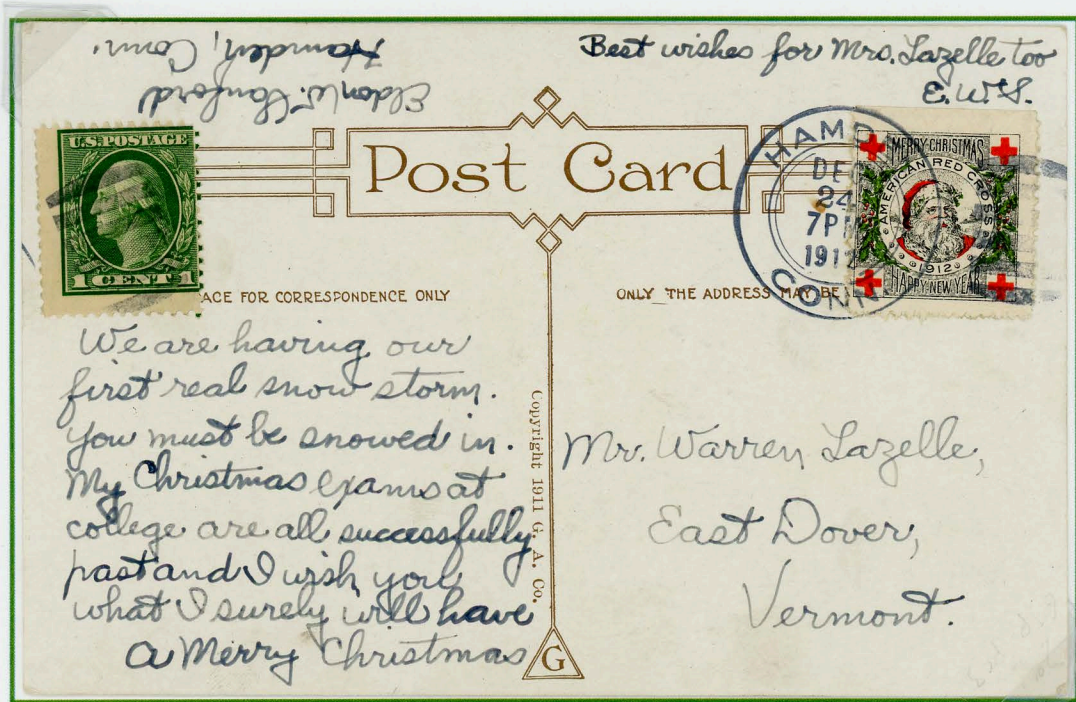 Best wishes for Mrs. Lazelle too
E.W.S.
Eldon W. Sanford
Hamden, Conn.
U.S. POSTAGE
1 CENT 1
Post Card
HAMD
DEC
24
7PM
1912
CONN
MERRY CHRISTMAS
AMERICAN RED CROSS
1912
HAPPY NEW YEAR
ACE FOR CORRESPONDENCE ONLY
ONLY THE ADDRESS MAY BE
We are having our
first real snow storm.
You must be snowed in.
My Christmas exams at
college are all successfully
past and I wish you
what I surely will have
a Merry Christmas
Copyright 1911 G. A. Co.
G
Mr. Warren Lazelle,
East Dover,
Vermont.